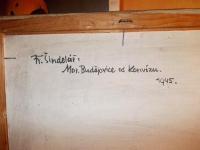 Fr. Šindelář:
Mor. Budějovice od Konvizu.
1945.